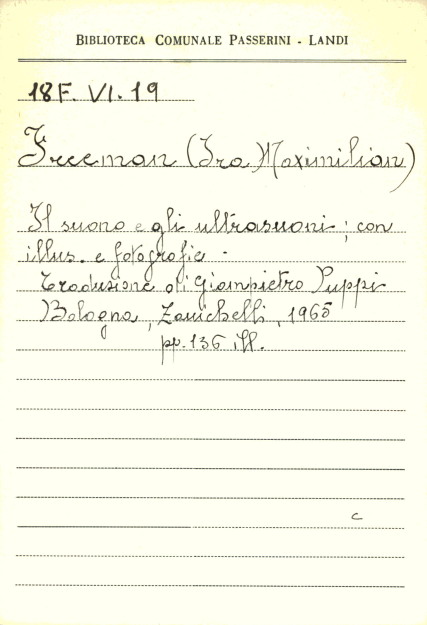 BIBLIOTECA COMUNALE PASSERINI - LANDI
18F. VI. 19
Freeman (Ira Maximilian)
Il suono e gli ultrasuoni ; con
illus. e fotografie -
Traduzione di Giampietro Puppi
Bologna, Zanichelli, 1965
pp. 136 ill.
c